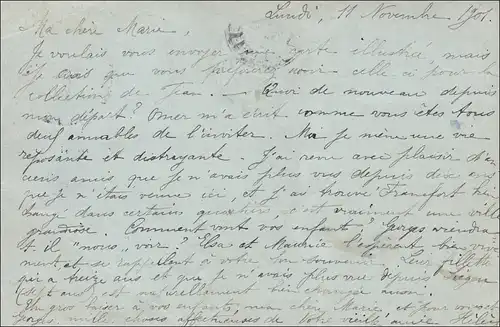 Lundi, 11 Novembre 1901.
Ma chère Marie,
Je voulais vous envoyer une carte illustrée, mais
je crois que vous préférez avoir celle ci pour la
collection de Jean. — Quoi de nouveau depuis
mon départ? Omer m'a écrit comme vous êtes tous
deux aimables de l'inviter. Ici je mène une vie
reposante et distrayante. J'ai revu avec plaisir d'an-
ciens amis que je n'avais plus vus depuis dix ans
que je n'étais venue ici, et j'ai trouvé Francfort bien
changé dans certains quartiers, c'est vraiment une ville
grandiose. Comment vont vos enfants? Georges viendra
t-il "nous" voir? Elsa et Maurice l'espèrent bien vive
ment et se rappellent à votre bon souvenir. Leur fillette
qui a treize ans et que je n'avais plus vue depuis
ans) est naturellement bien changée aussi.
Un gros baiser à vos enfants, ma chère Marie, et pour vous
Georges mille choses affectueuses de votre vieille amie